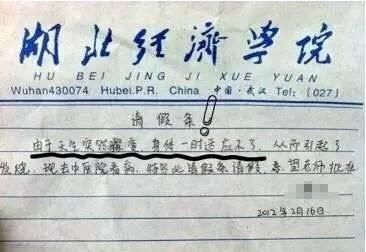 湖北经濟学院
HU BEI JING JI XUE YUAN
Wuhan430074 Hubei.P.R. China 中国·武汉 Tel: (027)
请假条!
由于天气突然骤变,身体一时适应不了,从而引起了
发烧,现去中医院看病,特写此请假条请假,希望老师批准
2012年2月16日